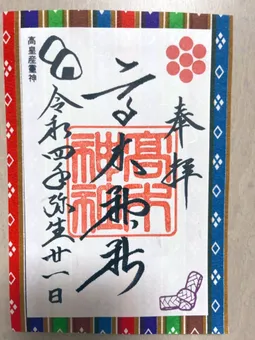 奉拝
高木神社
高木神社
令和四年弥生廿一日
高皇産霊神